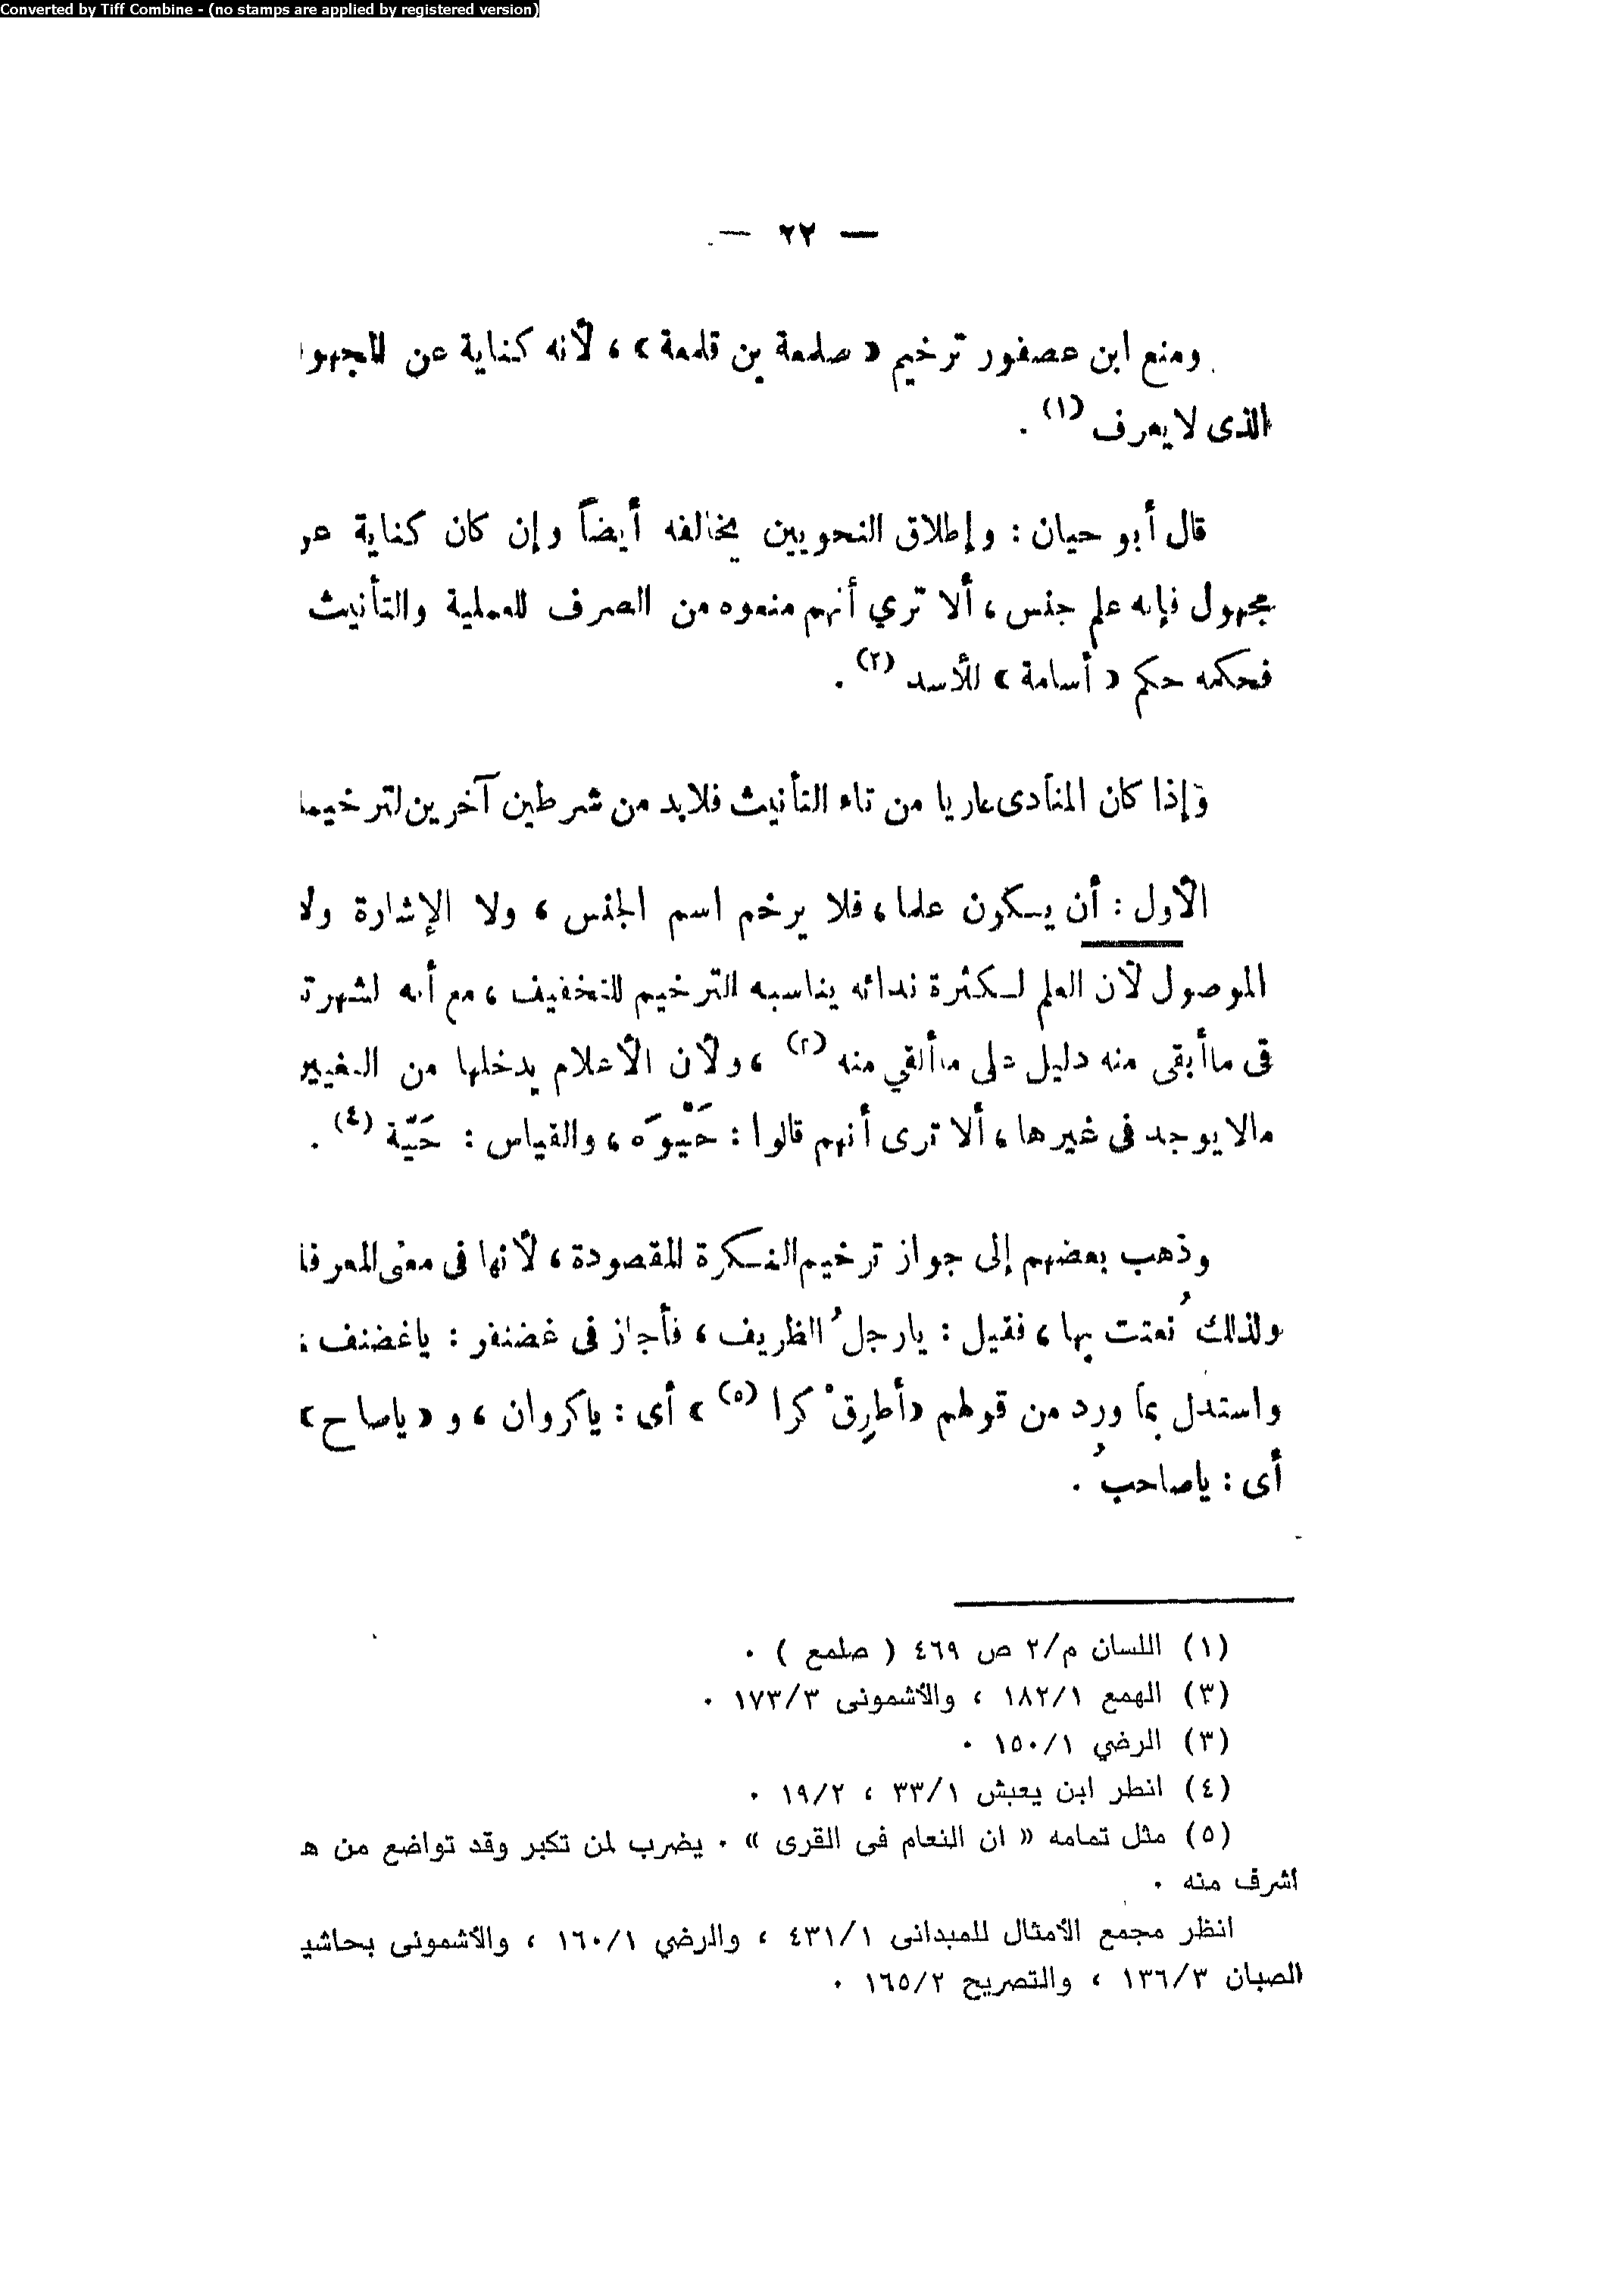 Converted by Tiff Combine - (no stamps are applied by registered version)
— ٢٢ —
ومنع ابن عصفور ترخيم « صلمعة بن قلمعة » ، لأنه كناية عن المجهو
الذى لا يعرف (١) .
قال أبو حيان : وإطلاق النحويين يخالفه أيضاً وإن كان كناية عن
مجهول فإنه علم جنس ، ألا تري أنهم منعوه من الصرف للعلمية والتأنيث
فحكمه حكم « أسامة » للأسد (٢) .
وإذا كان المنادى عاريا من تاء التأنيث فلابد من شرطين آخرين لترخيما
الأول : أن يكون علما ، فلا يرخم اسم الجنس ، ولا الإشارة ولا
الموصول لأن العلم لكثرة ندائه يناسبه الترخيم للتخفيف ، مع أنه لشهرة
فى ما أبقى منه دليل على ما ألقي منه (٣) ، ولأن الأعلام يدخلها من التغيير
مالا يوجد فى غيرها ، ألا ترى أنهم قالوا : حَيْوَه ، والقياس : حَيّة (٤) .
وذهب بعضهم إلى جواز ترخيم النكرة المقصودة ، لأنها فى معنى المعرفة
ولذلك نُعتت بها ، فقيل : يارجلُ الظريف ، فأجاز فى غضنفر : ياغضنف ؛
واستدل بما ورد من قولهم «أطرِقْ كرا (٥) » أى : ياكروان ، و «ياصاح»
أى : ياصاحبُ .
(١) اللسان م/٢ ص ٤٦٩ ( صلمع ) .
(٣) الهمع ١٨٢/١ ، والأشمونى ١٧٣/٣ .
(٣) الرضي ١٥٠/١ .
(٤) انطر ابن يعيش ٣٣/١ ، ١٩/٢ .
(٥) مثل تمامه « ان النعام فى القرى » . يضرب لمن تكبر وقد تواضع من هـ
أشرف منه .
انظر مجمع الأمثال للميدانى ٤٣١/١ ، والرضي ١٦٠/١ ، والأشمونى بحاشيـ
الصبان ١٣٦/٣ ، والتصريح ١٦٥/٢ .